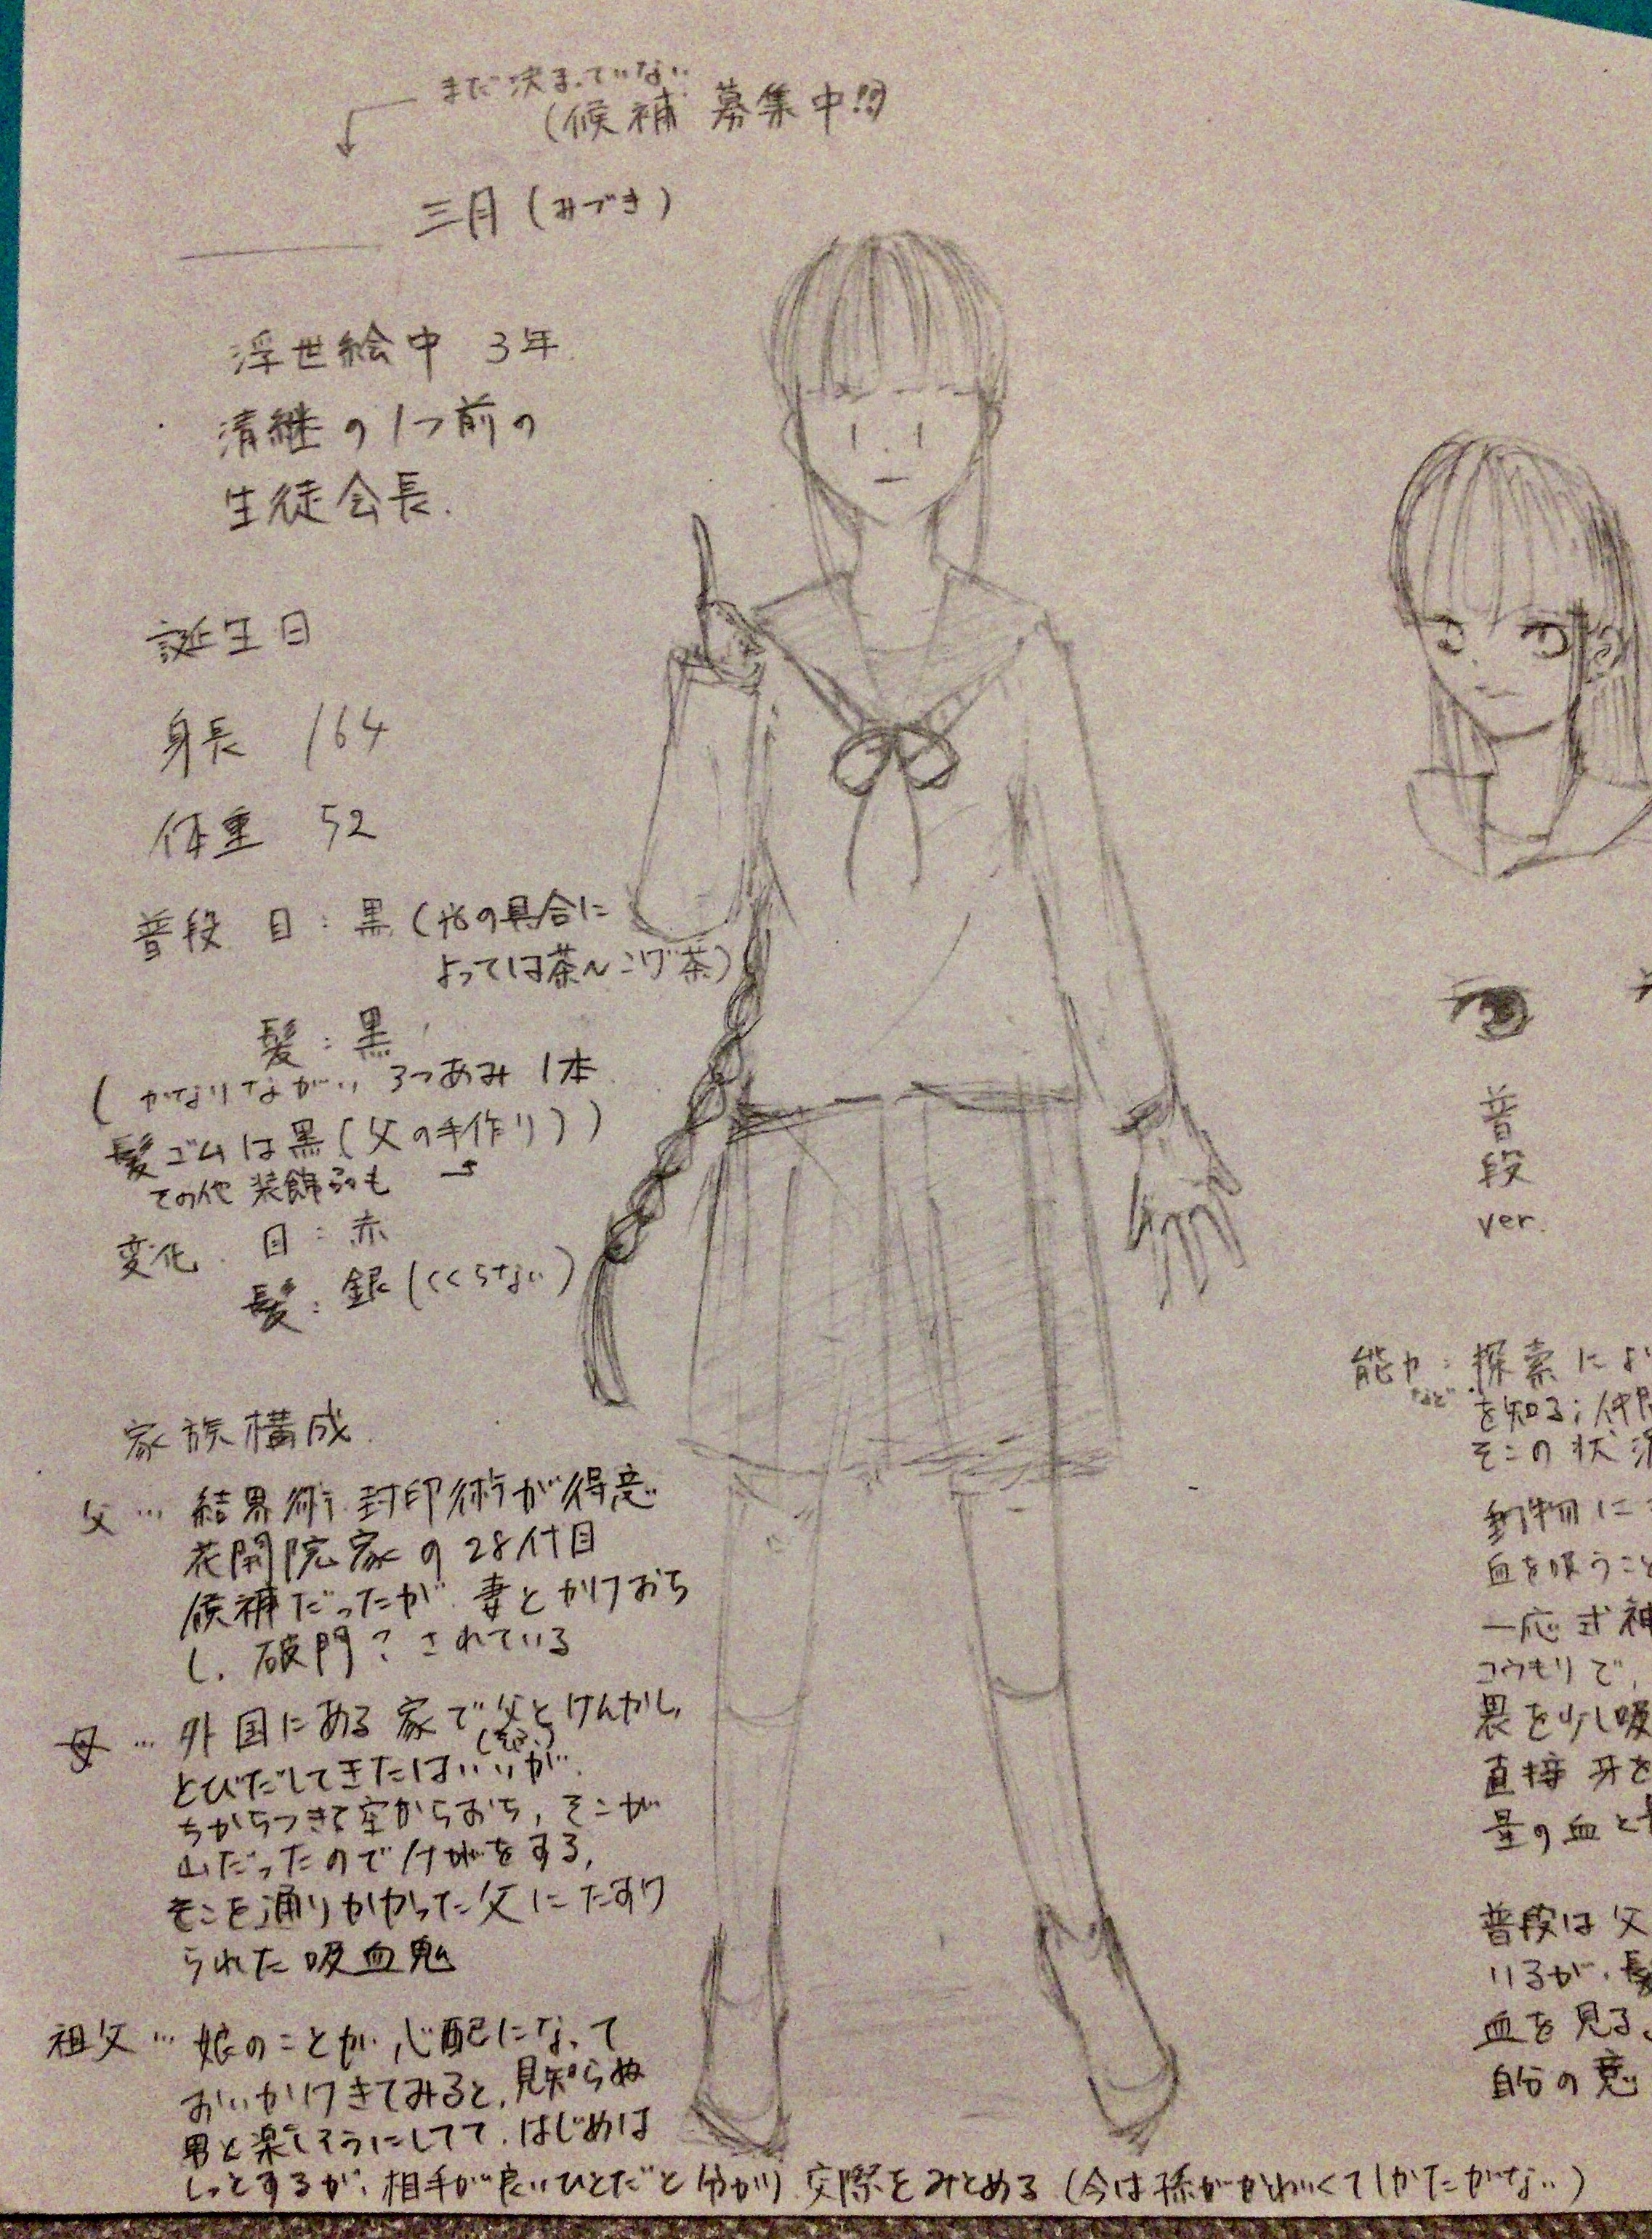 まだ決まっていない
(候補 募集中!!?)
三月(みづき)
浮世絵中 3年.
清継の1つ前の
生徒会長.
誕生日
身長 164
体重 52
普段 目:黒(光の具合に
よっては茶〜こげ茶)
髪:黒
(かなりながい 3つあみ 1本
髪ゴムは黒(父の手作り))
その他 装飾 も →
変化 目:赤
髪:銀(くくらない)
家族構成
父…結界術.封印術が得意
花開院家の28代目
候補だったが.妻とかけおち
し.破門?されている
母…外国にある家で父とけんかし,
とびだしてきたはいいが.
ちからつきて空からおち,そこが
山だったのでけがをする,
そこを通りかかった父にたすけ
られた吸血鬼
祖父…娘のことが心配になって
おいかけきてみると,見知らぬ
男と楽しそうにしてて.はじめは
しっとするが,相手が良いひとだと分かり交際をみとめる(今は孫がかわいくてしかたがない)
普
段
ver.
能力など:探索によ
を知る;仲
そこの状
動物に
血を吸うこと
一応式神
コウモリで,
畏を少し吸
直接牙を
量の血と
普段は父
いるが,髪
血を見る、
自分の意